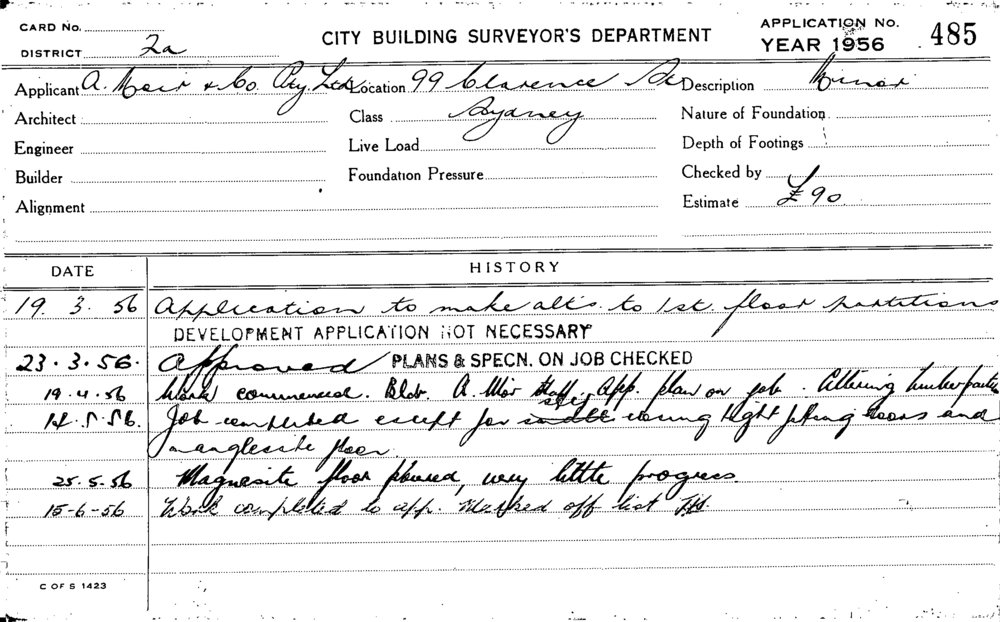 CARD No.
DISTRICT 2a
CITY BUILDING SURVEYOR'S DEPARTMENT
APPLICATION No. 485
YEAR 1956
Applicant A. Moir & Co. Pty. Ltd. Location 99 Clarence St Description Minor
Architect Class Sydney Nature of Foundation
Engineer Live Load Depth of Footings
Builder Foundation Pressure Checked by
Alignment Estimate £90
DATE HISTORY
19. 3. 56 Application to make alts. to 1st. floor partitions
DEVELOPMENT APPLICATION NOT NECESSARY
23.3.56. Approved PLANS & SPECN. ON JOB CHECKED
19.4.56 Work commenced. Bldr. A. Moir App. plan on job. Altering timber
14.5.56. Job completed except for doors and
floor.
25.5.56 Magnesite floor poured, very little progress
15-6-56 Work completed to app. Marked off list
C OF S 1423